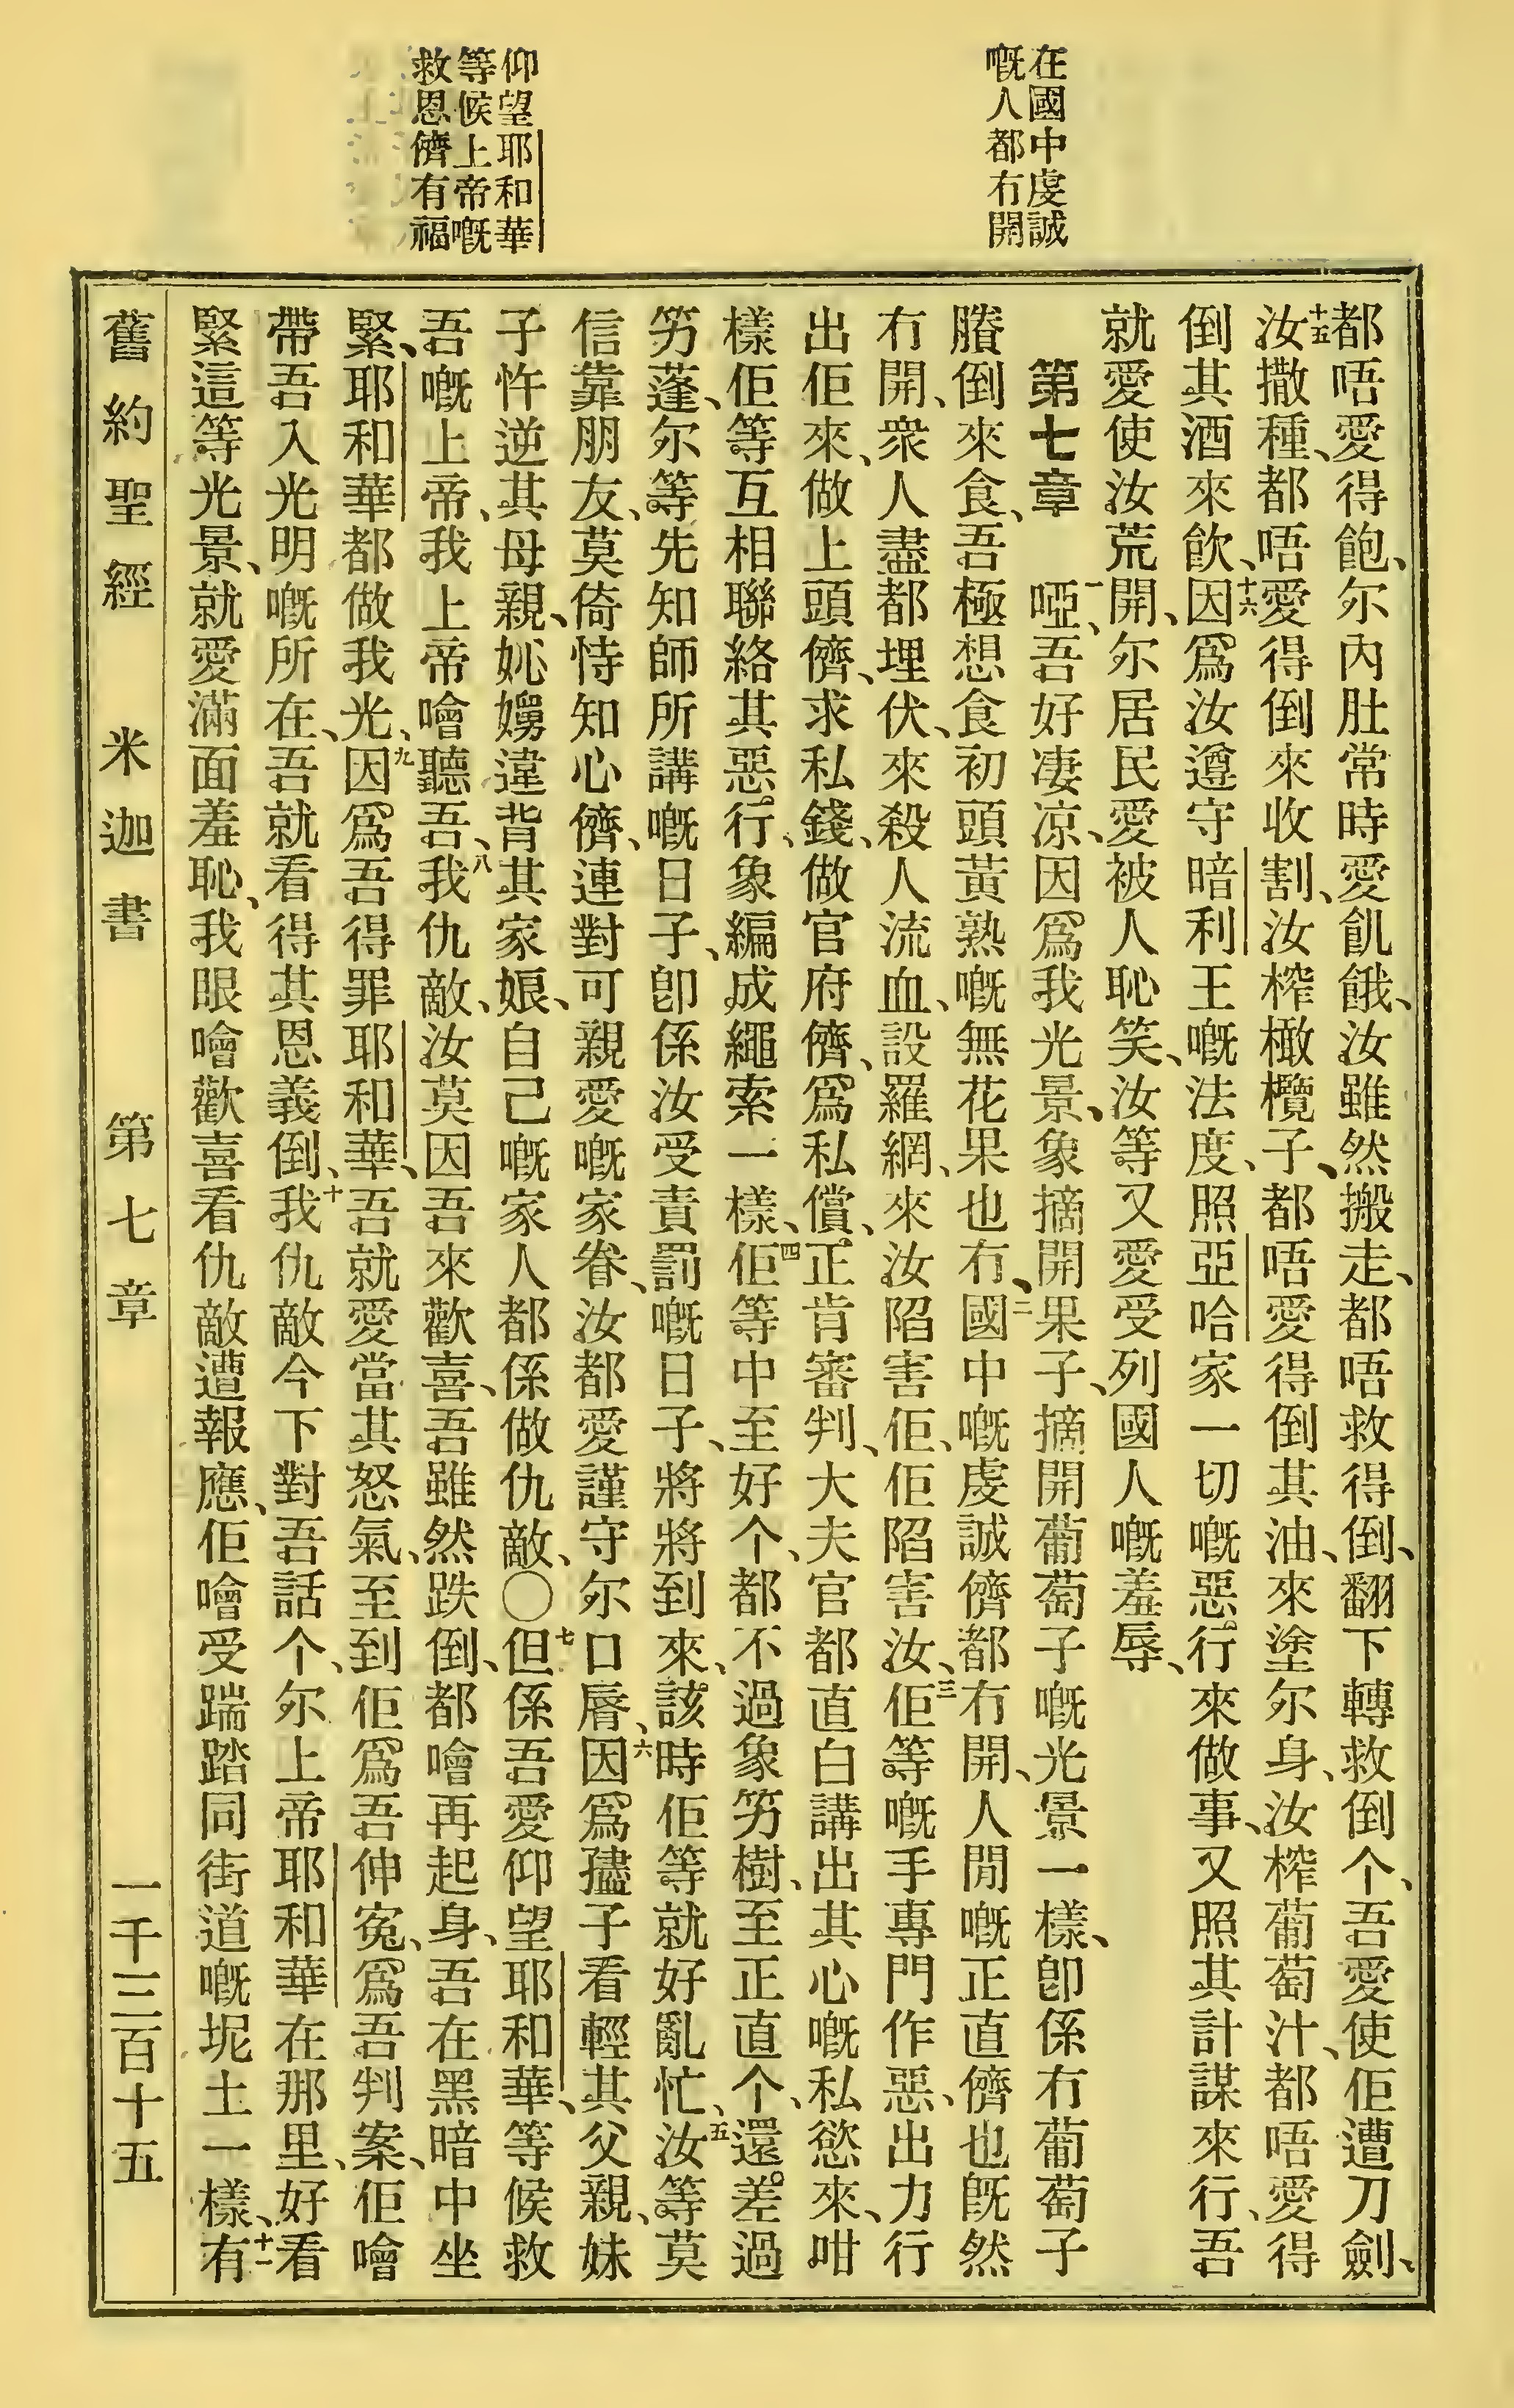 在國中虔誠
嘅人都冇開
仰望耶和華
等候上帝嘅
救恩儕有福
都唔愛得飽、尔內肚常時愛飢餓、汝雖然搬走、都唔救得倒、翻下轉救倒个、吾愛使佢遭刀劍、
十五汝撒種、都唔愛得倒來收割、汝榨橄欖子、都唔愛得倒其油、來塗尔身、汝榨葡萄汁、都唔愛得
倒其酒來飲、十六因爲汝遵守暗利王嘅法度、照亞哈家一切嘅惡行來做事、又照其計謀來行、吾
就愛使汝荒開、尔居民愛被人恥笑、汝等又愛受列國人嘅羞辱、
第七章 一啞、吾好凄凉、因爲我光景、象摘開果子、摘開葡萄子嘅光景一樣、卽係冇葡萄子
賸倒來食、吾極想食初頭黃熟嘅無花果也冇、二國中嘅虔誠儕都冇開、人閒嘅正直儕也旣然
冇開、衆人盡都埋伏、來殺人流血、設羅網、來汝陷害佢、佢陷害汝、三佢等嘅手專門作惡、出力行
出佢來、做上頭儕、求私錢、做官府儕、爲私償、正肯審判、大夫官都直白講出其心嘅私慾來、咁
樣佢等互相聯絡其惡行、象編成繩索一樣、四佢等中至好个、都不過象竻樹、至正直个、還差過
竻蓬、尔等先知師所講嘅日子、卽係汝受責罰嘅日子、將將到來、該時佢等就好亂忙、五汝等莫
信靠朋友、莫倚恃知心儕、連對可親愛嘅家眷、汝都愛謹守尔口脣、六因爲孻子看輕其父親、妹
子忤逆其母親、㚰嫐違背其家娘、自己嘅家人都係做仇敵、〇七但係吾愛仰望耶和華、等候救
吾嘅上帝、我上帝噲聽吾、八我仇敵、汝莫因吾來歡喜、吾雖然跌倒、都噲再起身、吾在黑暗中坐
緊、耶和華都做我光、九因爲吾得罪耶和華、吾就愛當其怒氣、至到佢爲吾伸寃、爲吾判案、佢噲
帶吾入光明嘅所在、吾就看得其恩義倒、十我仇敵今下對吾話个、尔上帝耶和華在那里、好看
緊這等光景、就愛滿面羞恥、我眼噲歡喜看仇敵遭報應、佢噲受踹踏同街道嘅坭土一樣、十一有
舊約聖經 米迦書 第七章 一千三百十五